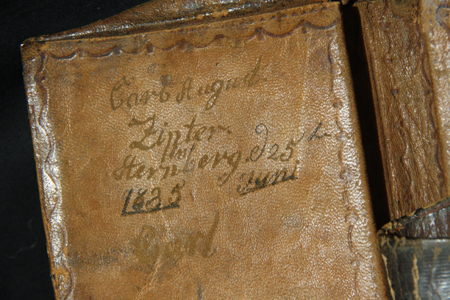 Carl August
Zipter
Sternberg d 25
Juni
1835